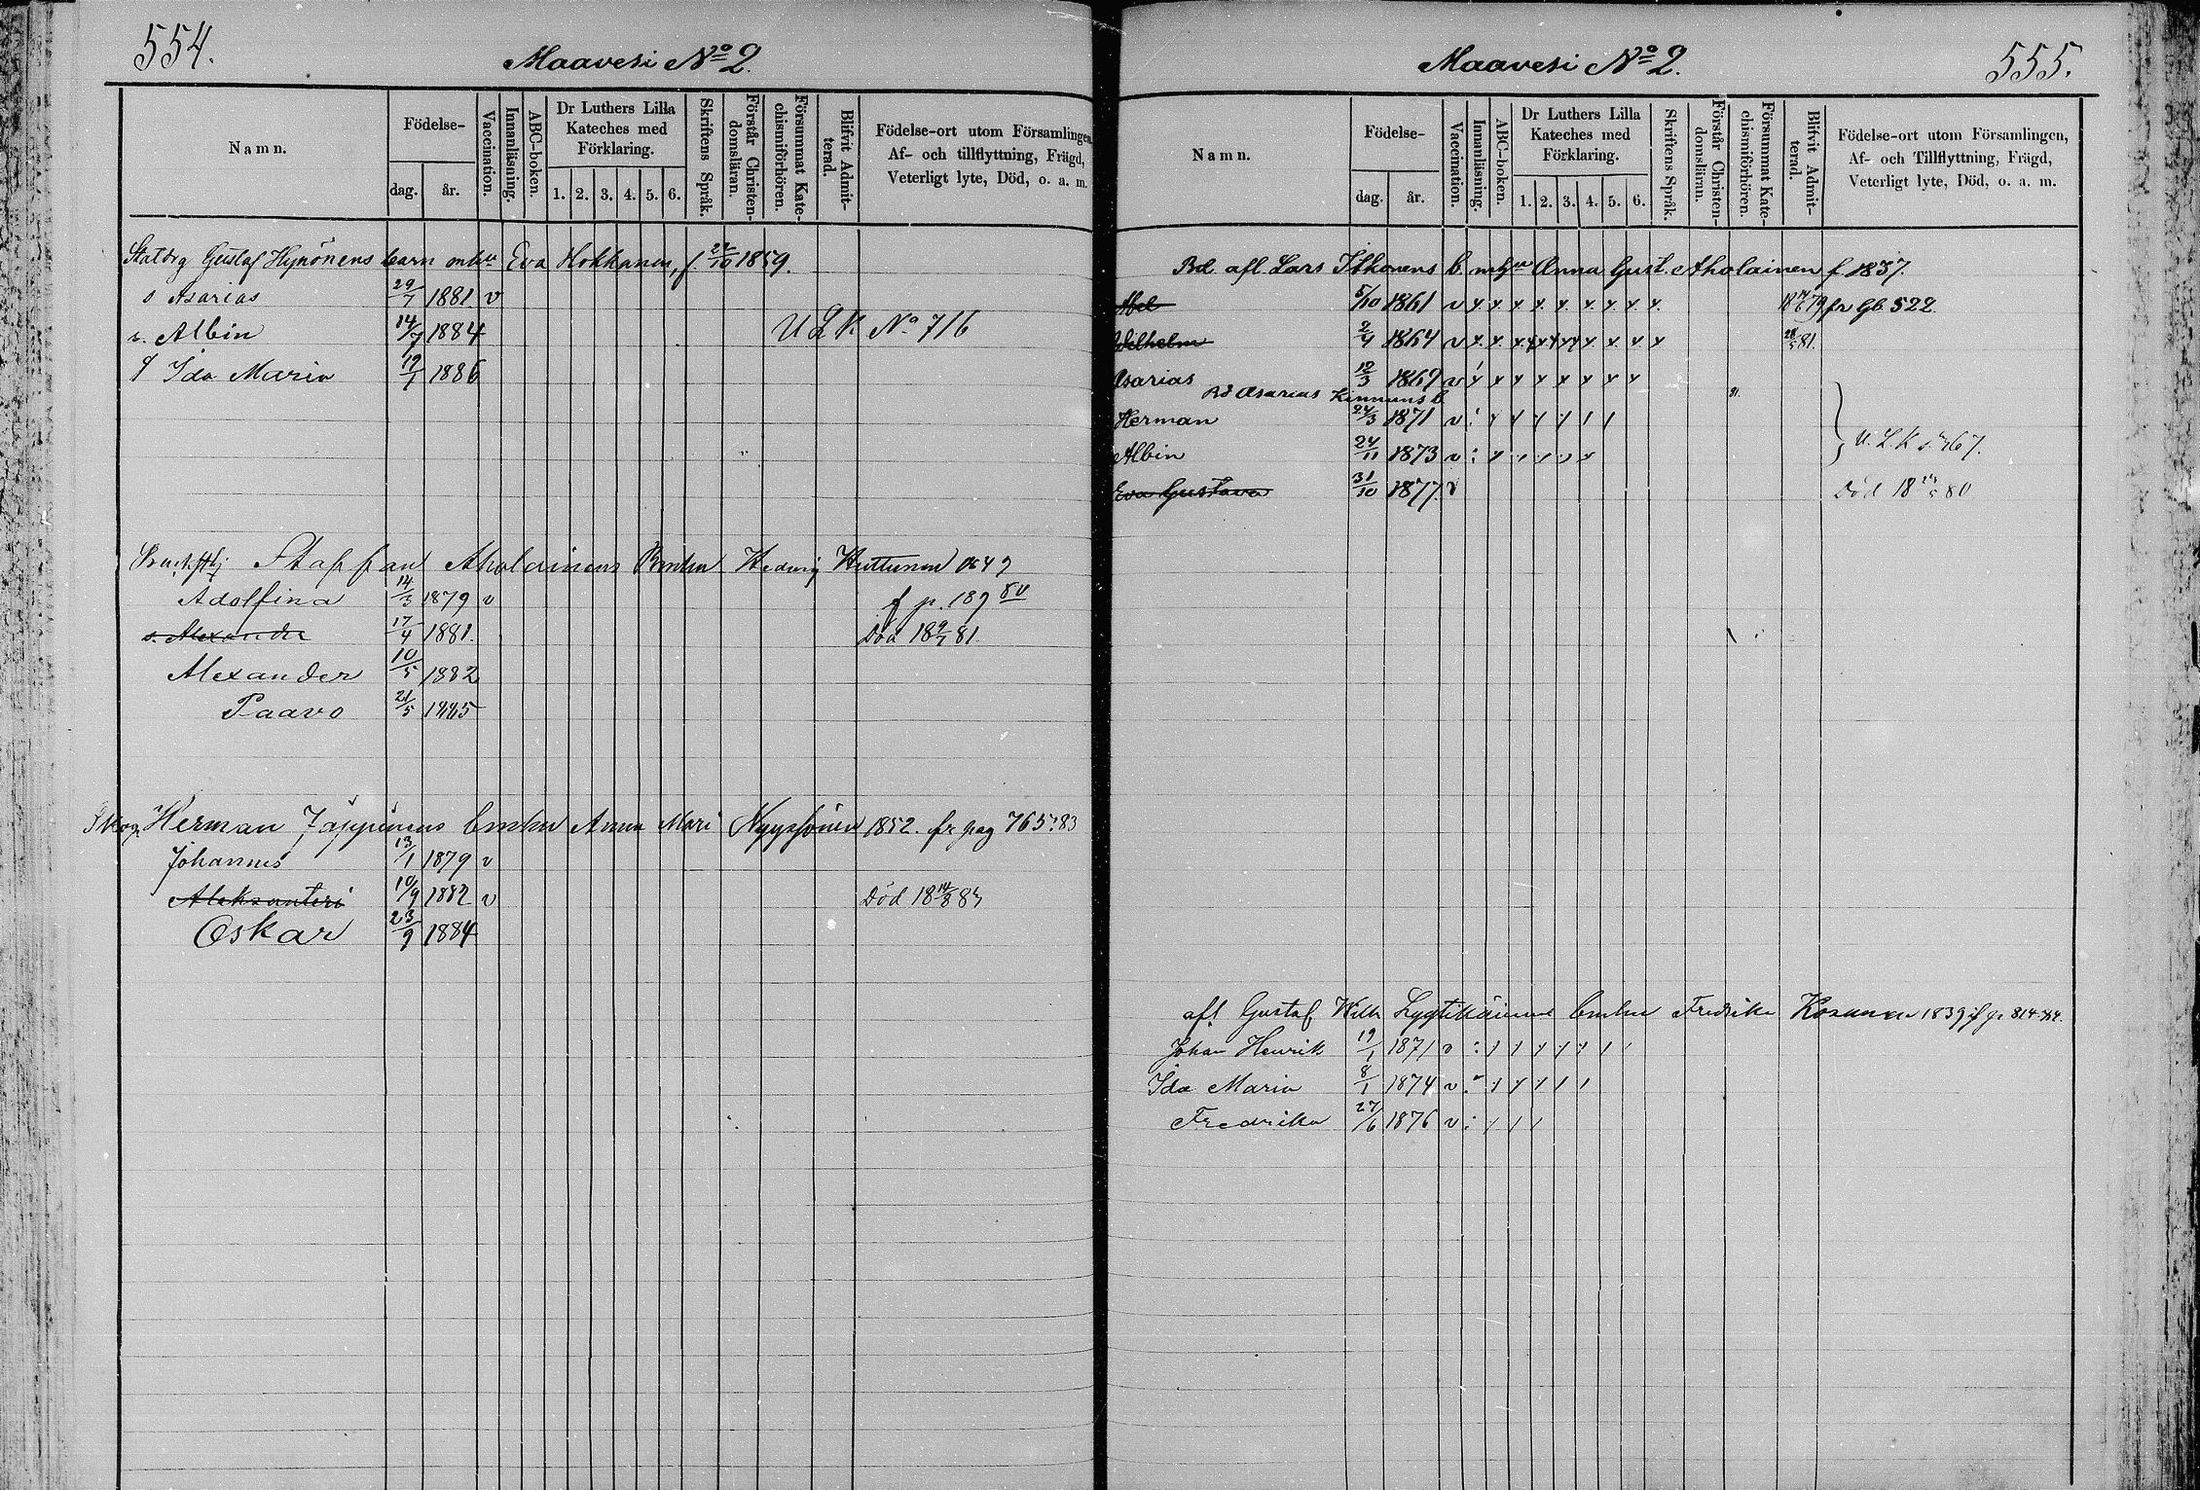 554.
Maavesi No 2.
Namn.
Födelse-
dag.
år.
Vaccination.
Innanläsning.
ABC-boken.
Dr Luthers Lilla
Kateches med
Förklaring.
1. 2. 3. 4. 5. 6.
Skriftens Språk.
Förstår Christen-
domsläran.
Försummat Kate-
chismiförhören.
Blifvit Admit-
terad.
Födelse-ort utom Församlingen
Af- och tillflyttning, Frägd,
Veterligt lyte, Död, o. a. m.
Gustaf Hynönens barn Eva Hokkanen, f. 1859.
s Asarias 29/7 1881 v
s. Albin 14/7 1884 U L K No 716
Ida Maria 1886
Staffan Aholainens Hedvig Huttunen
Adolfina 14/3 1879 v f p. 189
s. Alexander 17/4 1881. Död 18 9/7 81
Alexander 10/5 1882
Paavo 21/5 1885
Herman Jäppinens Anna Mari Nyyssönen 1852. fr pag 765.83
Johannes 13/1 1879 v
Aleksanteri 10/9 1882 v Död 18 14/8 83
Oskar 23/9 1884
555.
Maavesi No 2.
Namn.
Födelse-
dag.
år.
Vaccination.
Innanläsning.
ABC-boken.
Dr Luthers Lilla
Kateches med
Förklaring.
1. 2. 3. 4. 5. 6.
Skriftens Språk.
Förstår Christen-
domsläran.
Försummat Kate-
chismiförhören.
Blifvit Admit-
terad.
Födelse-ort utom Församlingen,
Af- och Tillflyttning, Frägd,
Veterligt lyte, Död, o. a. m.
afl Lars Itkonens b. Anna Gust. Aholainen f 1837.
Abel 5/10 1861 v fr Gb 522.
Wilhelm 2/4 1864 v
Asarias 12/3 1869 v
Asarias Kinnunens b.
Herman 24/3 1871 v
Albin 24/11 1873 v U. L. K s. 767.
Eva Gustava 31/10 1877 v Död 18 80
afl Gustaf Wilh Lyytikäinens Fredrika Kosunen 1839
Johan Henrik 19/1 1871 v
Ida Maria 8/1 1874 v
Fredrika 27/6 1876 v